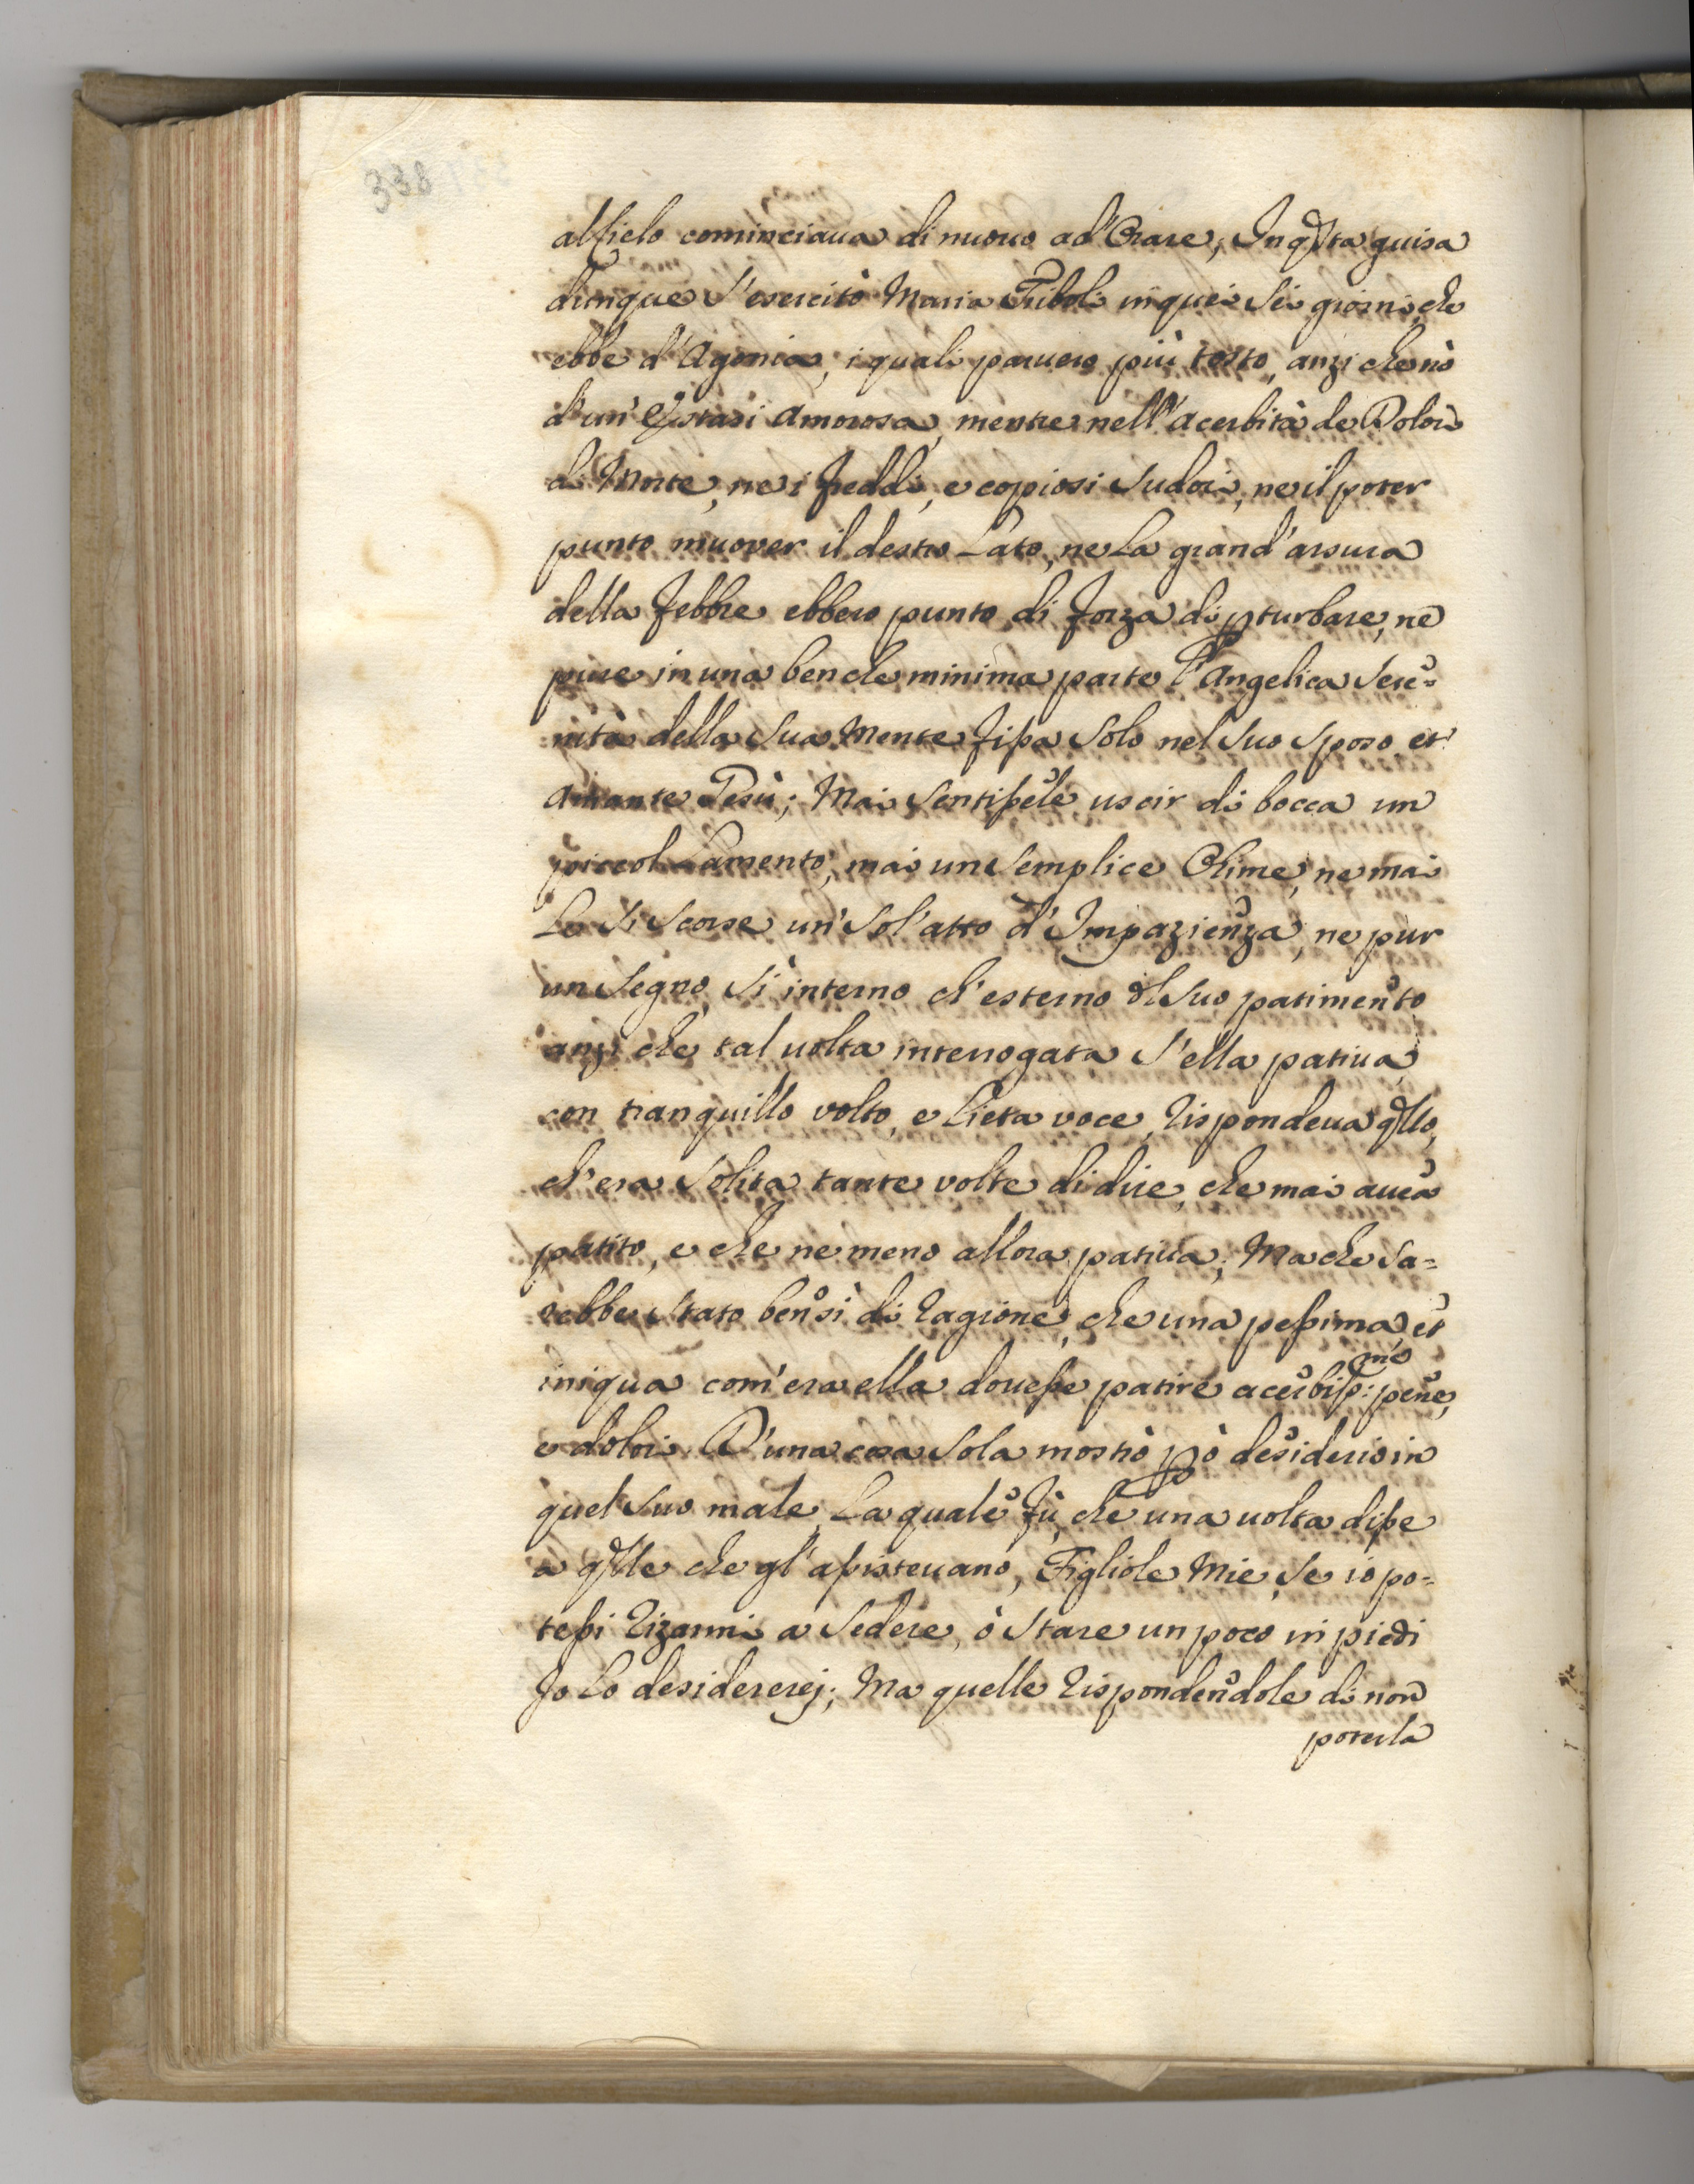 338
al Cielo cominciaua di nuouo ad' Orare; In q̃sta guisa
dunque s'esercitò Maria Triboli in quei sei giorni, che
ebbe d'Agonia, i quali paruero più tosto, anzi che nò
d'un' Estasi Amorosa, mentre nell'acerbità de Dolori
di Morte, ne i freddi, e copiosi sudori, ne il poter
punto muover il destro Lato, ne La grand'arsura
della febbre ebbero punto di forza di pturbare, ne
pure in una benche minima parte l'Angelica Sere=
nità della sua Mente fissa solo nel suo Sposo et
Amante Giesù; Mai sentissele uscir di bocca un
piccol Lamento, mai un semplice Ohime, ne mai
Le si scorse un' sol'atto d'Impazienza, ne pur
un segno, sì interno ch'esterno dl suo patimento
anzi che tal uolta interrogata s'ella patiua,
con tranquillo volto, e Lieta voce, Rispondeua q̃llo,
ch'era solita tante volte di dire, che mai auea
patito, e che ne meno allora patiua; Ma che Sa=
rebbe stato bensì di Ragione, che una pessima, et
iniqua com'era ella douesse patire acerbiss:me pene,
e dolori. D'una cosa sola mostrò pò desiderio in
quel suo male, La quale fù, che una uolta disse
a q̃lle che gl'assisteuano, Figliole Mie, se io po=
tessi Rizarmi a Sedere, ò stare un poco in piedi
Io Lo desidererej; Ma quelle Rispondendole di non
poterla